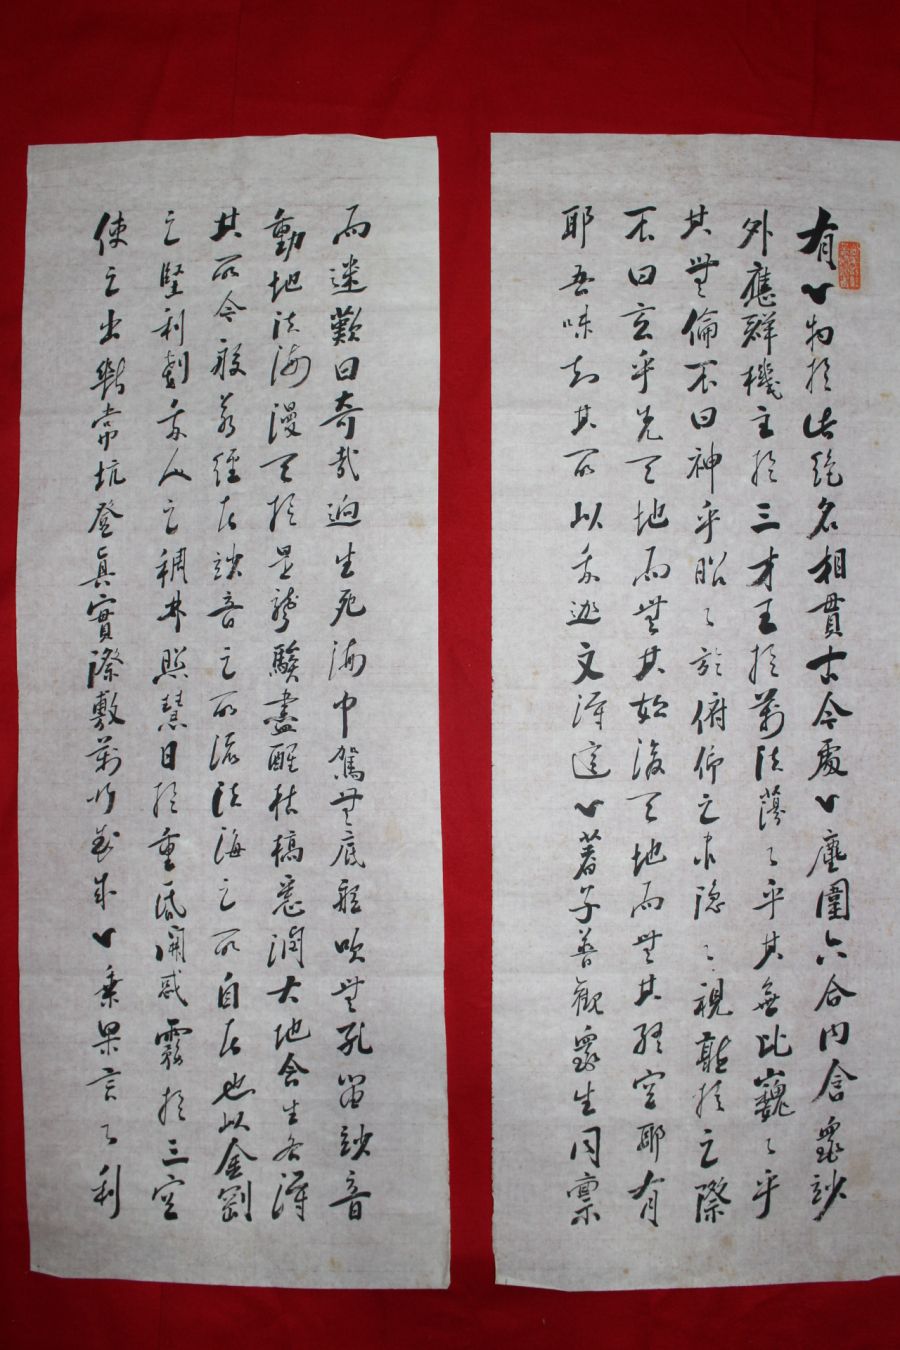 有一物於此絶名相貫古今處一塵圍六合内含衆妙
外應群機主於三才王於萬法蕩々乎其無比巍々乎
其無倫不曰神乎昭々於俯仰之間隱々視聽於之際
不曰玄乎先天地而無其始後天地而無其終空耶有
耶吾味知其所以我迦文得這一著子普觀衆生同稟
而迷歎曰奇哉逈生死海中駕無底船吹無孔笛妙音
動地法海漫天於是聾騃盡醒枯槁悉潤大地含生各得
其所今般若經者妙音之所流法海之所自者也以金剛
之堅利剗我人之稠林照慧日於重昏開惑霧於三空
使之出斷常坑登眞實際敷萬行花成一乘果言々利